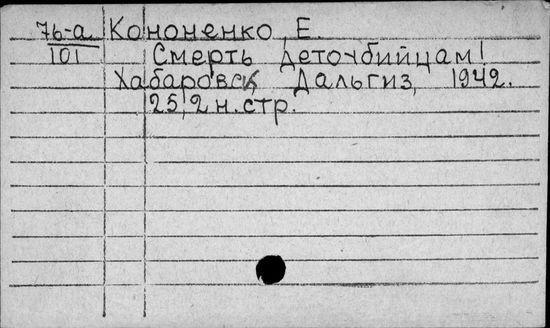 76-а Кононенко, Е.
101 Смерть детоубийцам!
Хабаровск, Дальгиз, 1942.
25,2 н.стр.